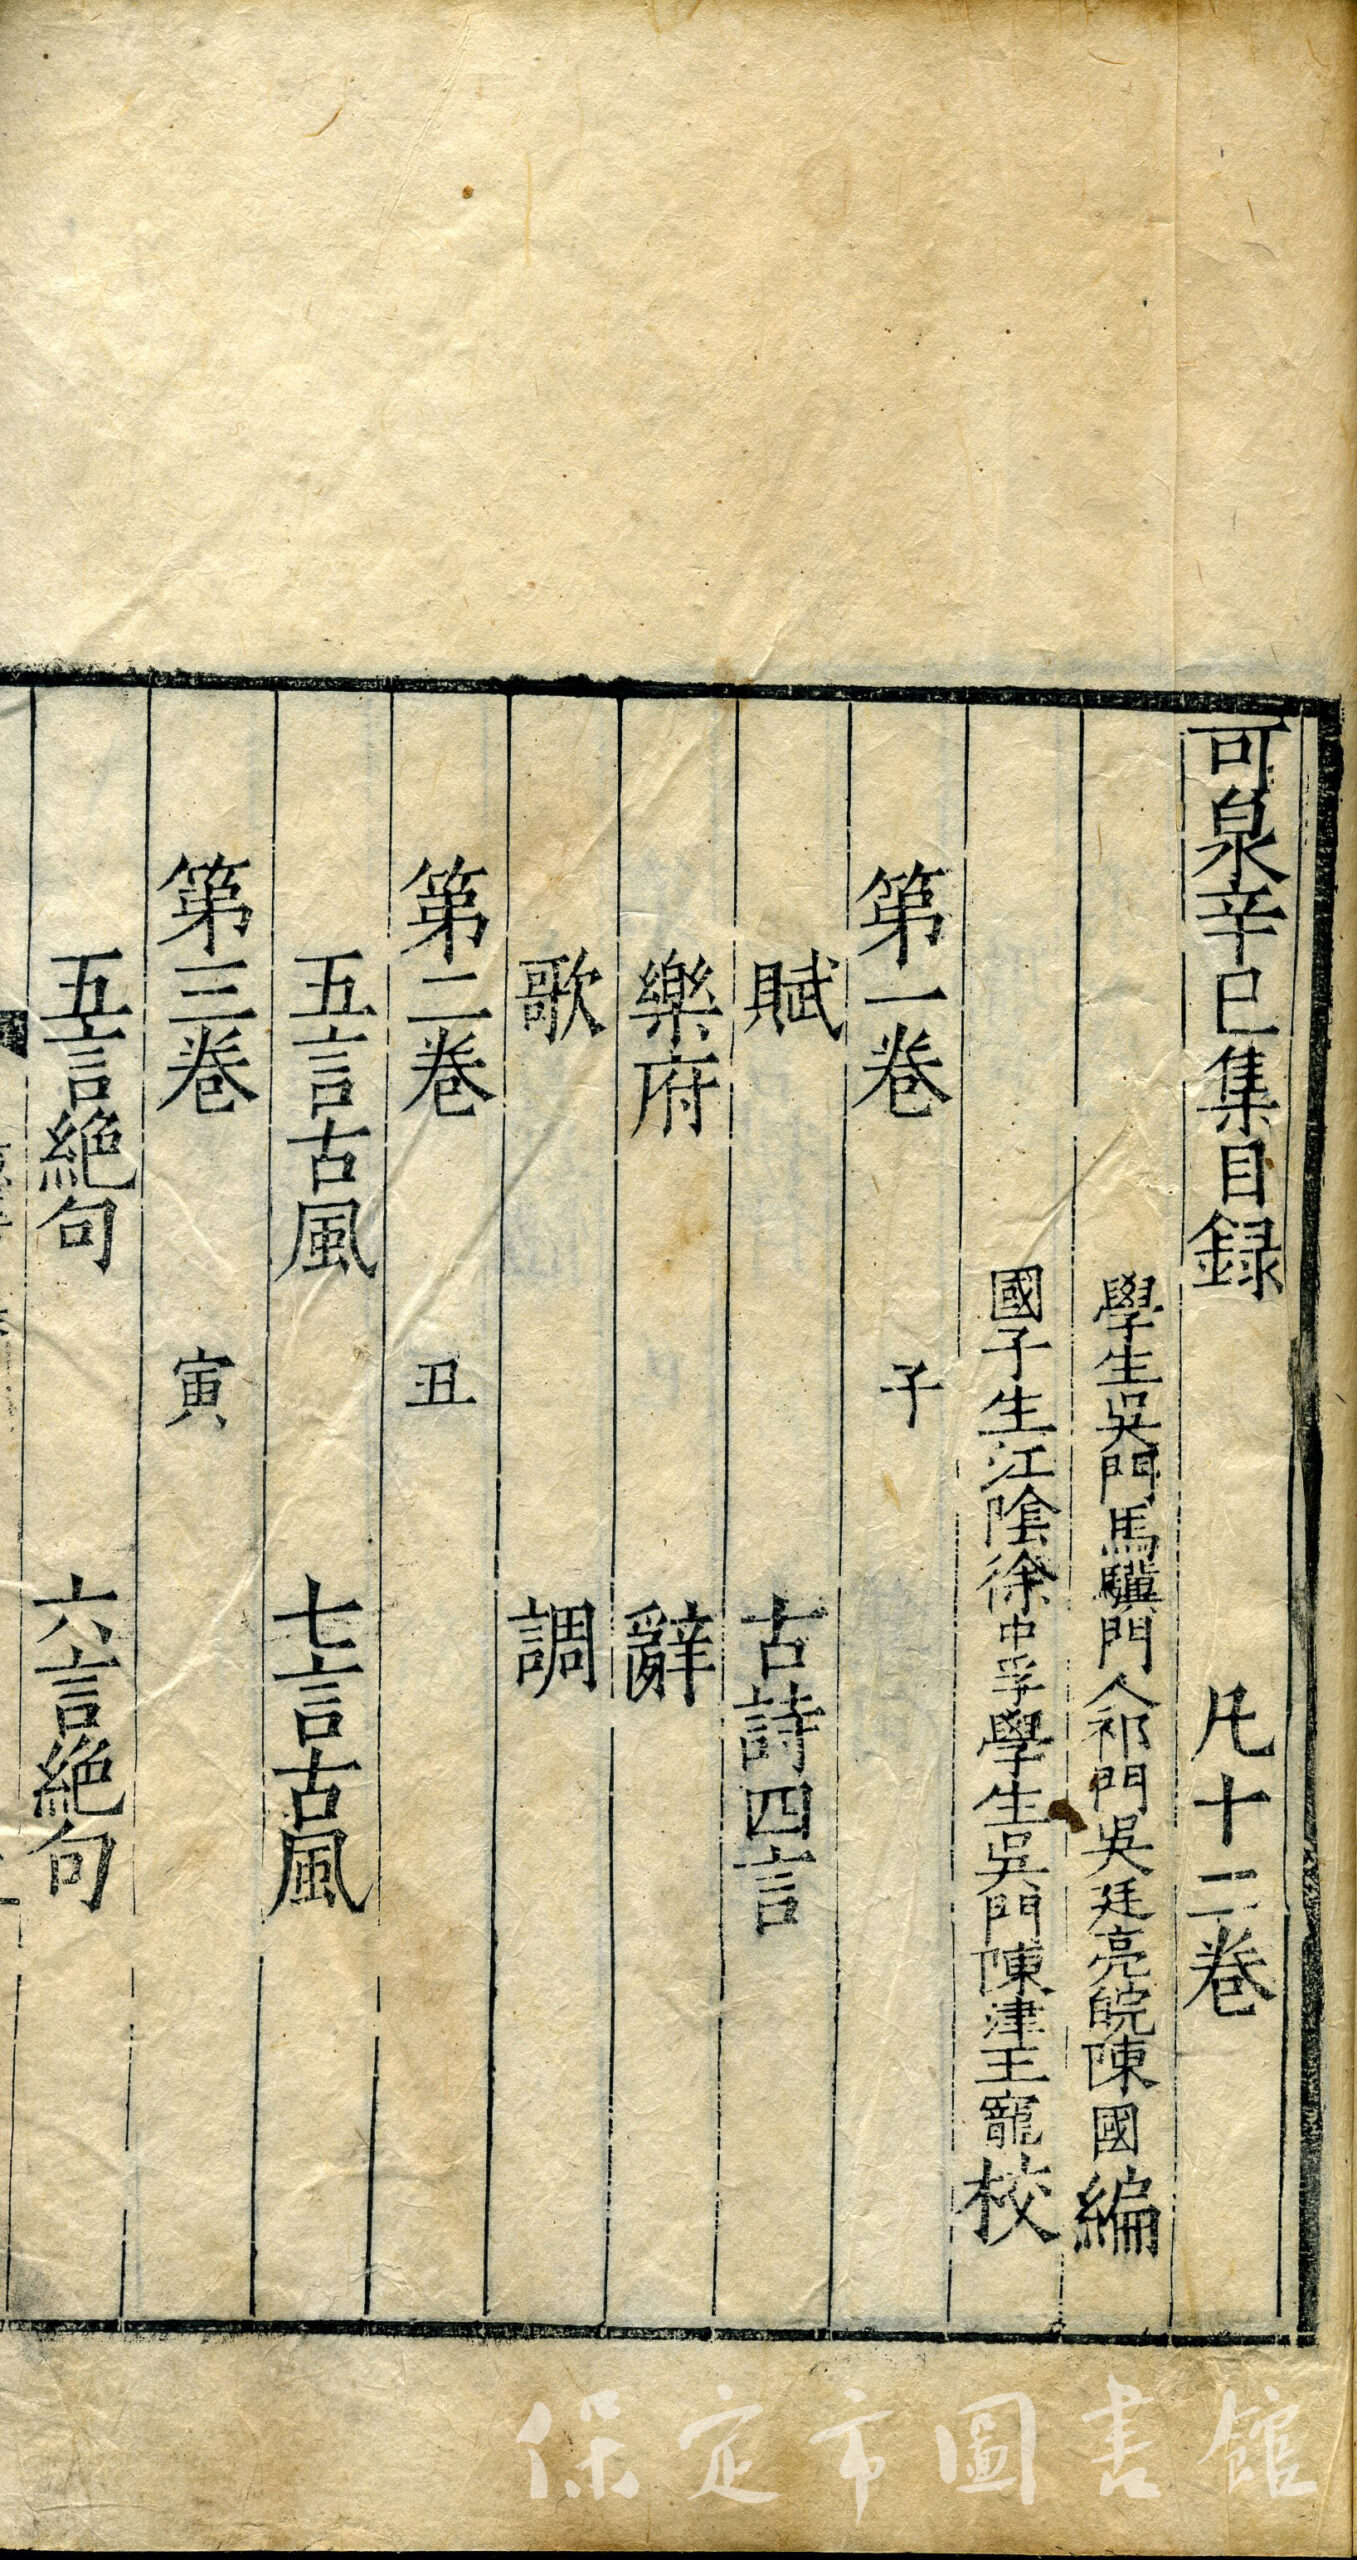 可泉辛巳集目録 凡十二卷
學生吳門馬驥門人祁門吳廷亮皖陳國編
國子生江陰徐中孚學生吳門陳津王寵校
第一卷 子
賦 古詩四言
樂府 辭
歌 調
第二卷 丑
五言古風 七言古風
第三卷 寅
五言絕句 六言絕句
保定市圖書館